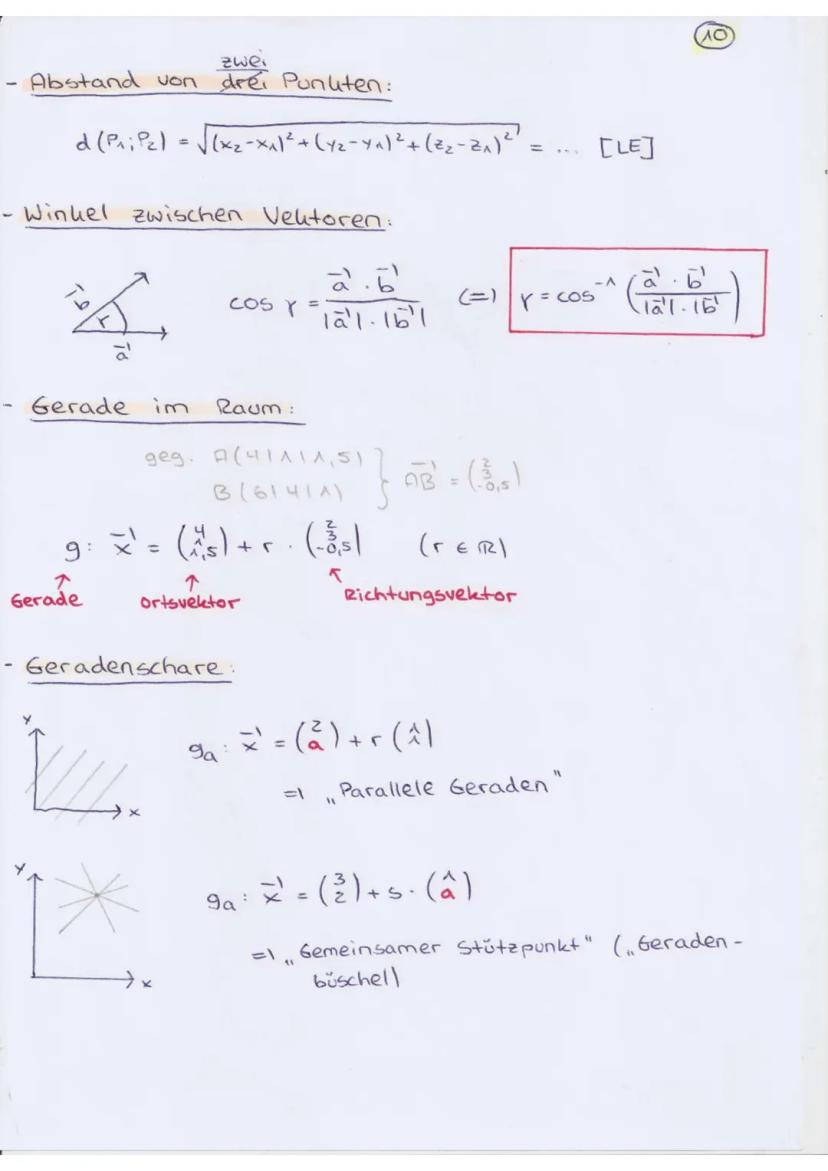 10
zwei
- Abstand von drei Punkten:
d (P₁; P₂) = √((x₂-x₁)² + (y₂-y₁)² + (z₂-z₁)²) = ... [LE]
- Winkel zwischen Vektoren:
b⃗ γ a⃗ cos γ = (a⃗ · b⃗)/(|a⃗| · |b⃗|) (=) γ = cos⁻¹ ((a⃗ · b⃗)/(|a⃗| · |b⃗))
- Gerade im Raum:
geg. A(4|1|1,5)
B(6|4|1) } AB⃗ = (2 3 -0,5)
g: x⃗ = (4 1 1,5) + r · (2 3 -0,5) (r ∈ ℝ)
Gerade Ortsvektor Richtungsvektor
- Geradenschare:
y x
gₐ: x⃗ = (2 a) + r (1 1)
=) „Parallele Geraden"
y x
gₐ: x⃗ = (3 2) + s · (1 a)
=) „Gemeinsamer Stützpunkt" („Geraden-
büschel)